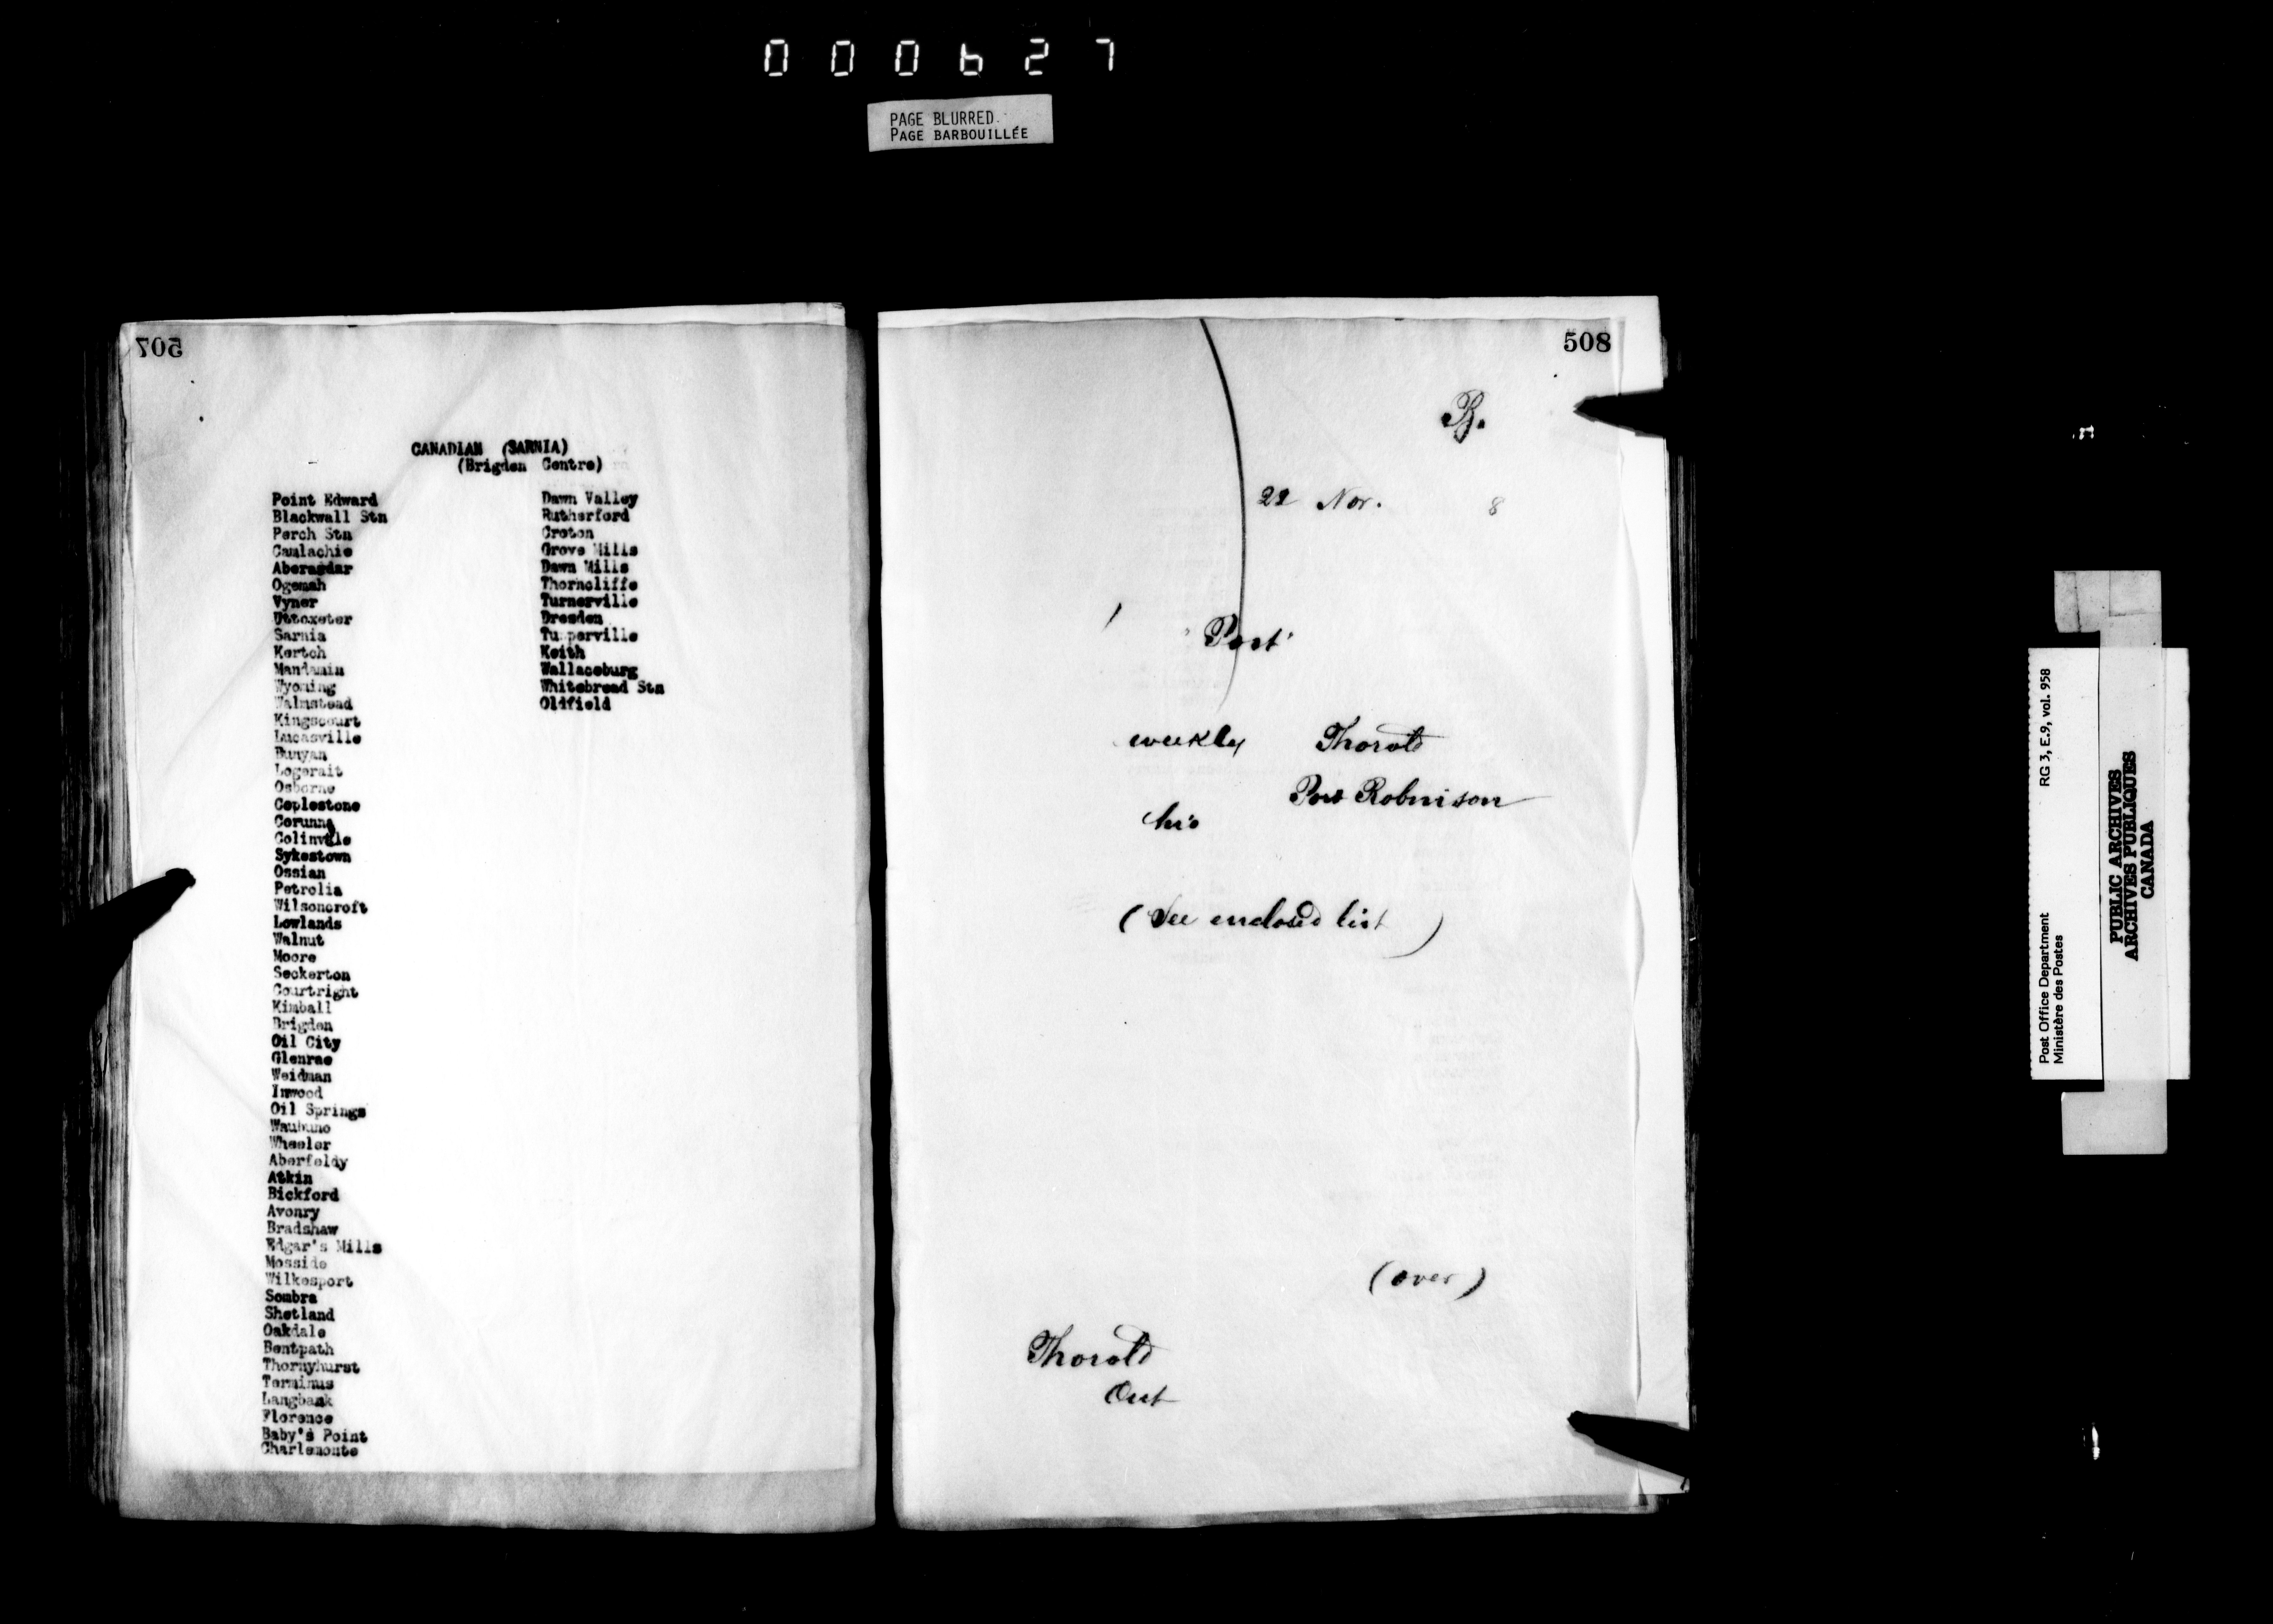 000627
PAGE BLURRED
PAGE BARBOUILLÉE
507
CANADIAN (SARNIA)
(Brigden Centre)
Point Edward
Blackwall Stn
Perch Stn
Camlachie
Aberarder
Ogemah
Vyner
Uttoxeter
Sarnia
Kertch
Mandamin
Wyoming
Walmstead
Kingscourt
Lucasville
Bunyan
Logerait
Osborne
Coplestone
Corunna
Colinville
Sykestown
Ossian
Petrolia
Wilsoncroft
Lowlands
Walnut
Moore
Seckerton
Courtright
Kimball
Brigden
Oil City
Glenrae
Weidman
Inwood
Oil Springs
Waubuno
Wheeler
Aberfeldy
Atkin
Bickford
Avonry
Bradshaw
Edgar's Mills
Mosside
Wilkesport
Sombra
Shetland
Oakdale
Bentpath
Thornyhurst
Terminus
Langbank
Florence
Baby's Point
Charlemonte
Dawn Valley
Rutherford
Croton
Grove Mills
Dawn Mills
Thorncliffe
Turnerville
Dresden
Tupperville
Keith
Wallaceburg
Whitebread Stn
Oldfield
508
B.
22 Nov. 8
"Post"
weekly Thorold
Port Robinson
his
(See enclosed list)
(over)
Thorold
Ont
Post Office Department RG 3, E.9, vol. 958
Ministère des Postes
PUBLIC ARCHIVES
ARCHIVES PUBLIQUES
CANADA